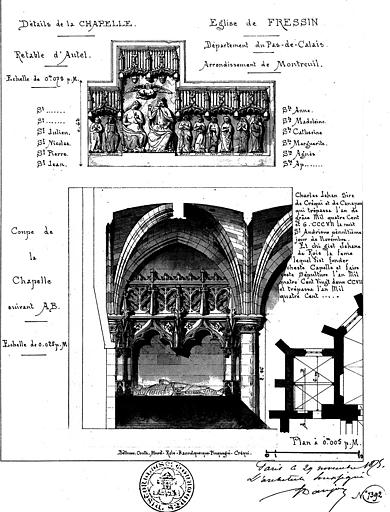 Détails de la CHAPELLE.
Eglise de FRESSIN
Retable d'Autel.
Département du Pas-de-Calais.
Arrondissement de Montreuil.
Echelle de 0.075 p.M.
St........
St........
St Julien.
St Nicolas.
St Pierre.
St Jean.
Ste Anne.
Ste Madeleine.
Ste Catherine
Ste Marguerite.
Ste Agnès
Ste Ap......
Coupe de
la
Chapelle
suivant A.B.
Echelle de 0.025 p.M
Charles Jehan Sire
de Créqui et de Canaples
qui trépassa l'an de
grâce Mil quatre Cent
et
St Andrieu pénultième
jour de Novembre.
Et chi gist Jehane
de Roie sa feme
lequel fist fonder
cheste Capelle et faire
ceste Sépulture l'an Mil
quatre Cent Vingt deux
et trépassa l'an Mil
quatre Cent .....
Plan à 0.005 p.M.
Paris le 29 novembre
L'architecte
No 7392